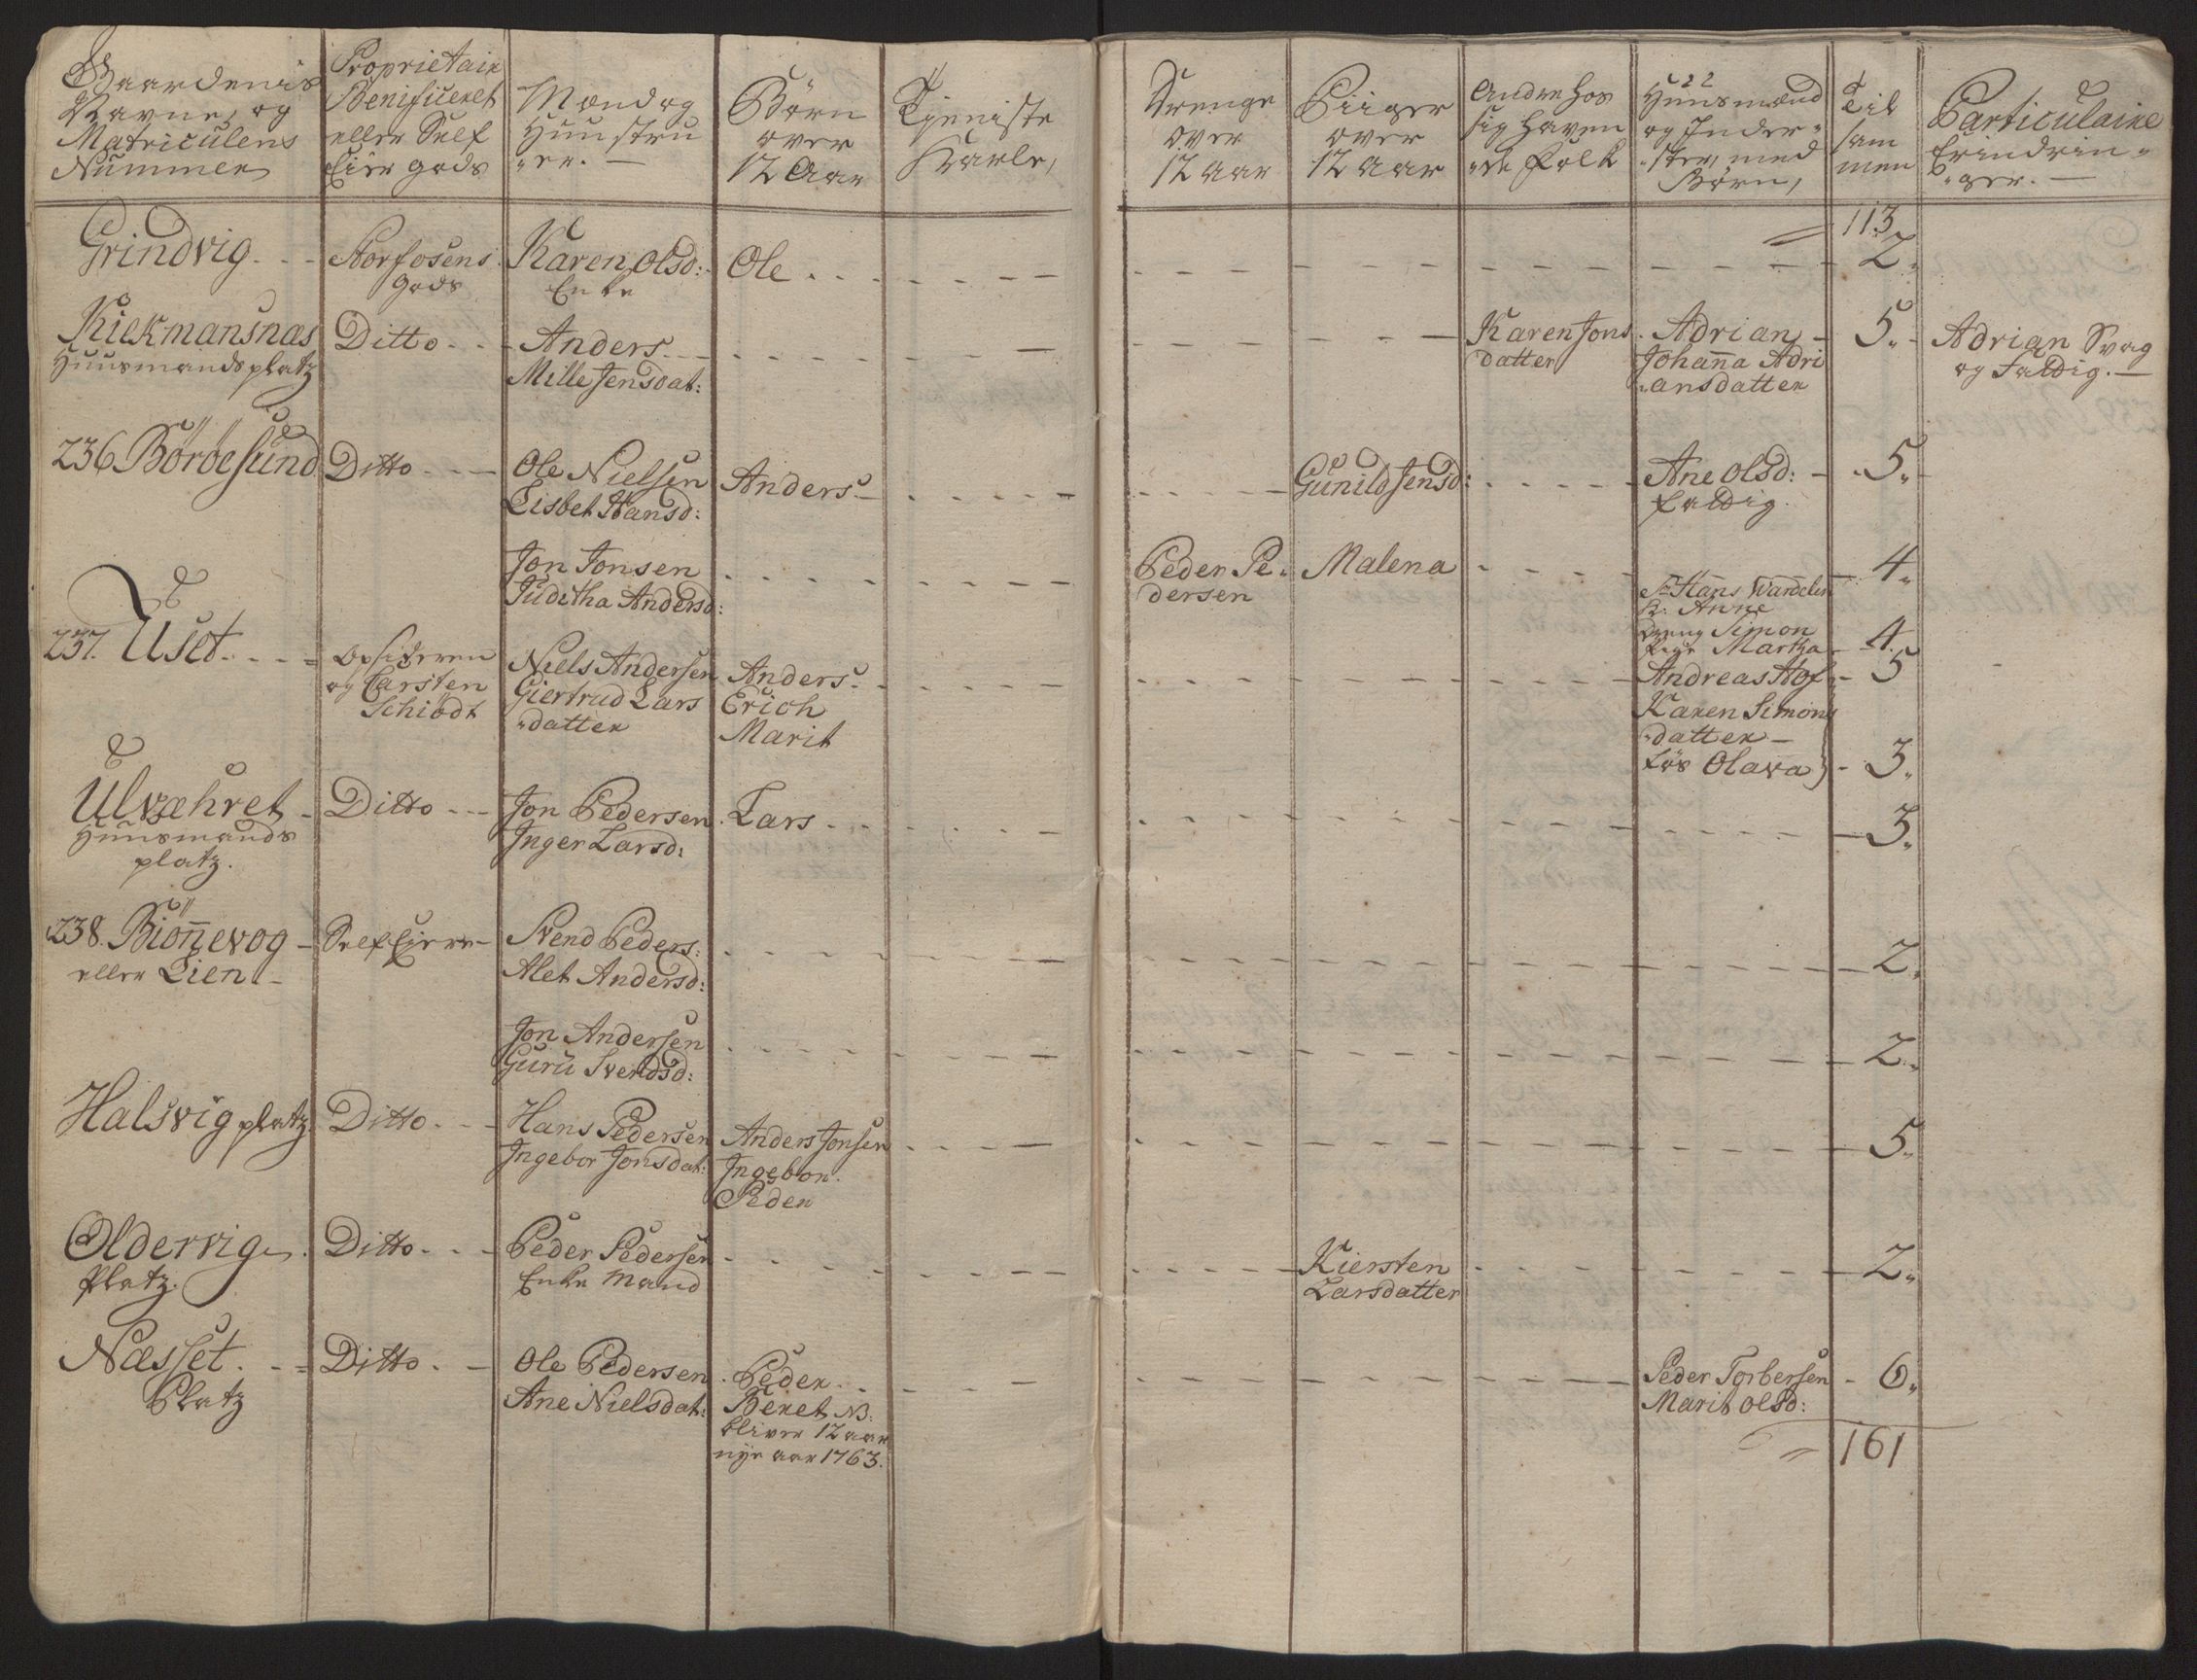 Gaardenis Navne, og Matriculens Nummer
Proprietair Benificeret eller Self Eier gods
Mænd og Huustruer.
Børn over 12 Aar
Tjeniste Karle,
Drenge over 12 aar
Piiger over 12 Aar
Andre hos sig havende Folk
Huusmænd og Inderster, med Børn,
Til sammen
Particulaire Erindringer.
22
113
Grindvig
Storfosens gods
Karen Olsd:
Enke
Ole
2
Kiekmansnæs
Huusmandsplatz
Ditto
Anders
Mille Jensdat:
Karen Jons
datter
Adrian
Johanna Adri
ansdatter
5
Adrian Svag
og Fattig.
236 Böröesund
Ditto
Ole Nielsen
Lisbet Hansd:
Anders
Gunild Jensd:
Ane Olsd:
fattig.
5
Jon Jonsen
Juditha Andersd:
Peder Pe
dersen
Malena
4
Hans Wandelin
K: Anne
Dreng Simon
Pige Martha
4
237. Uset
Opsideren
og Carsten
Schiödt
Niels Andersen
Giertrud Lars
datter
Anders
Erich
Marit
5
Andreas Hof
Karen Simons
datter
Olava
3
Ulvæhret
Huusmands
platz.
Ditto
Jon Pedersen
Inger Larsd:
Lars
3
238. Biönnevog
eller Lien
Self Eiere
Svend Peders:
Alet Andersd:
2
Jon Andersen
Guru Svendsd:
2
Halsvig platz
Ditto
Hans Pedersen
Ingebor Jonsdat:
Anders Jonsen
Ingebor.
Peder
5
Oldervig
Platz.
Ditto
Peder Pedersen
Enke Mand
Kiersten
Larsdatter
2
Næsset
Platz
Ditto
Ole Pedersen
Ane Nielsdat:
Peder
Beret NB:
bliver 12 aar
nye aar 1763.
Peder Torbersen
Marit Olsd:
6
161